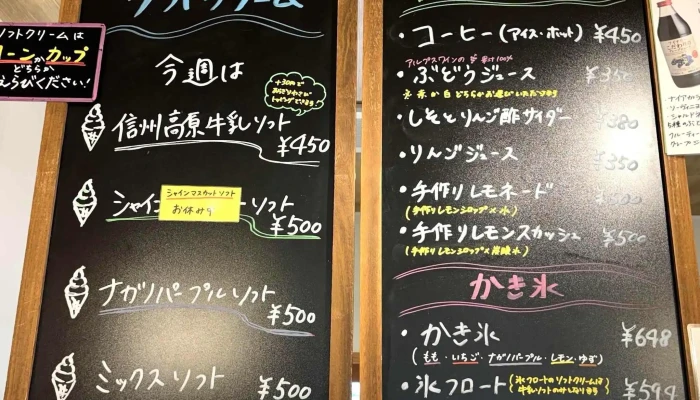 ソフトクリームは
コーンかカップ
どちらか
えらびください!
ソフトクリーム
今週は
+30円で
トッピングできます
信州高原牛乳ソフト
¥450
シャインマスカットソフト
お休み
シャイン ーソフト
¥500
ナガノパープルソフト
¥500
ミックスソフト
¥500
・コーヒー(アイス・ホット) ¥450
アルプスワインの 果汁100%
・ぶどうジュース ¥350
赤か白どちらかお選びいただけます
・しそとりんご酢サイダー
・りんごジュース ¥350
・手作りレモネード
(手作りレモンシロップ×水)
・手作りレモンスカッシュ ¥500
(手作りレモンシロップ×炭酸水)
かき氷
・かき氷 ¥648
(もも・いちご・ナガノパープル・レモン・ゆず)
・氷フロート (氷フロートのソフトクリームは ¥594
牛乳ソフトのみとなります)